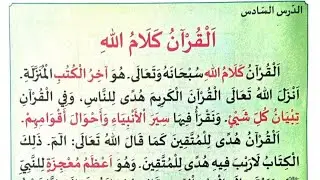 الدّرس السّادس
اَلْقُرْآنُ كَلَامُ اللهِ
اَلْقُرْآنُ كَلَامُ اللهِ سُبْحَانَهُ وَتَعَالَى. هُوَ آخِرُ الْكُتُبِ الْمُنَزَّلَةِ.
اَنْزَلَ اللهُ تَعَالَى الْقُرْآنَ الْكَرِيمَ هُدًى لِلنَّاسِ، وَفِي الْقُرْآنِ
تِبْيَانُ كُلِّ شَيْءٍ. وَنَقْرَأُ فِيهَا سِيَرَ الْأَنْبِيَاءِ وَأَحْوَالَ أَقْوَامِهِمْ.
اَلْقُرْآنُ هُدًى لِلْمُتَّقِينَ كَمَا قَالَ اللهُ تَعَالَى: الٓمٓ. ذَلِكَ
الْكِتَابُ لَارَيْبَ فِيهِ هُدًى لِلْمُتَّقِينَ. وَهُوَ أَعْظَمُ مُعْجِزَةٍ لِلنَّبِيِّ